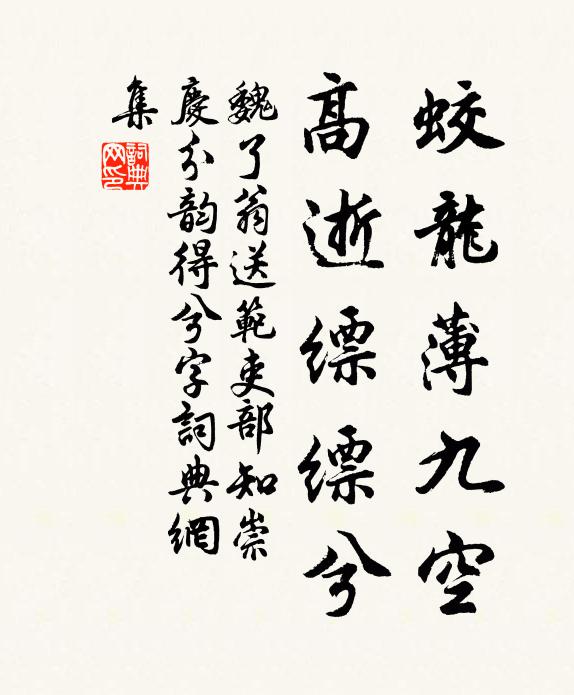 蛟龍薄九空
高逝縹縹兮
魏了翁送範吏部知崇
慶分韵得兮字詞典網
集
詞典网印